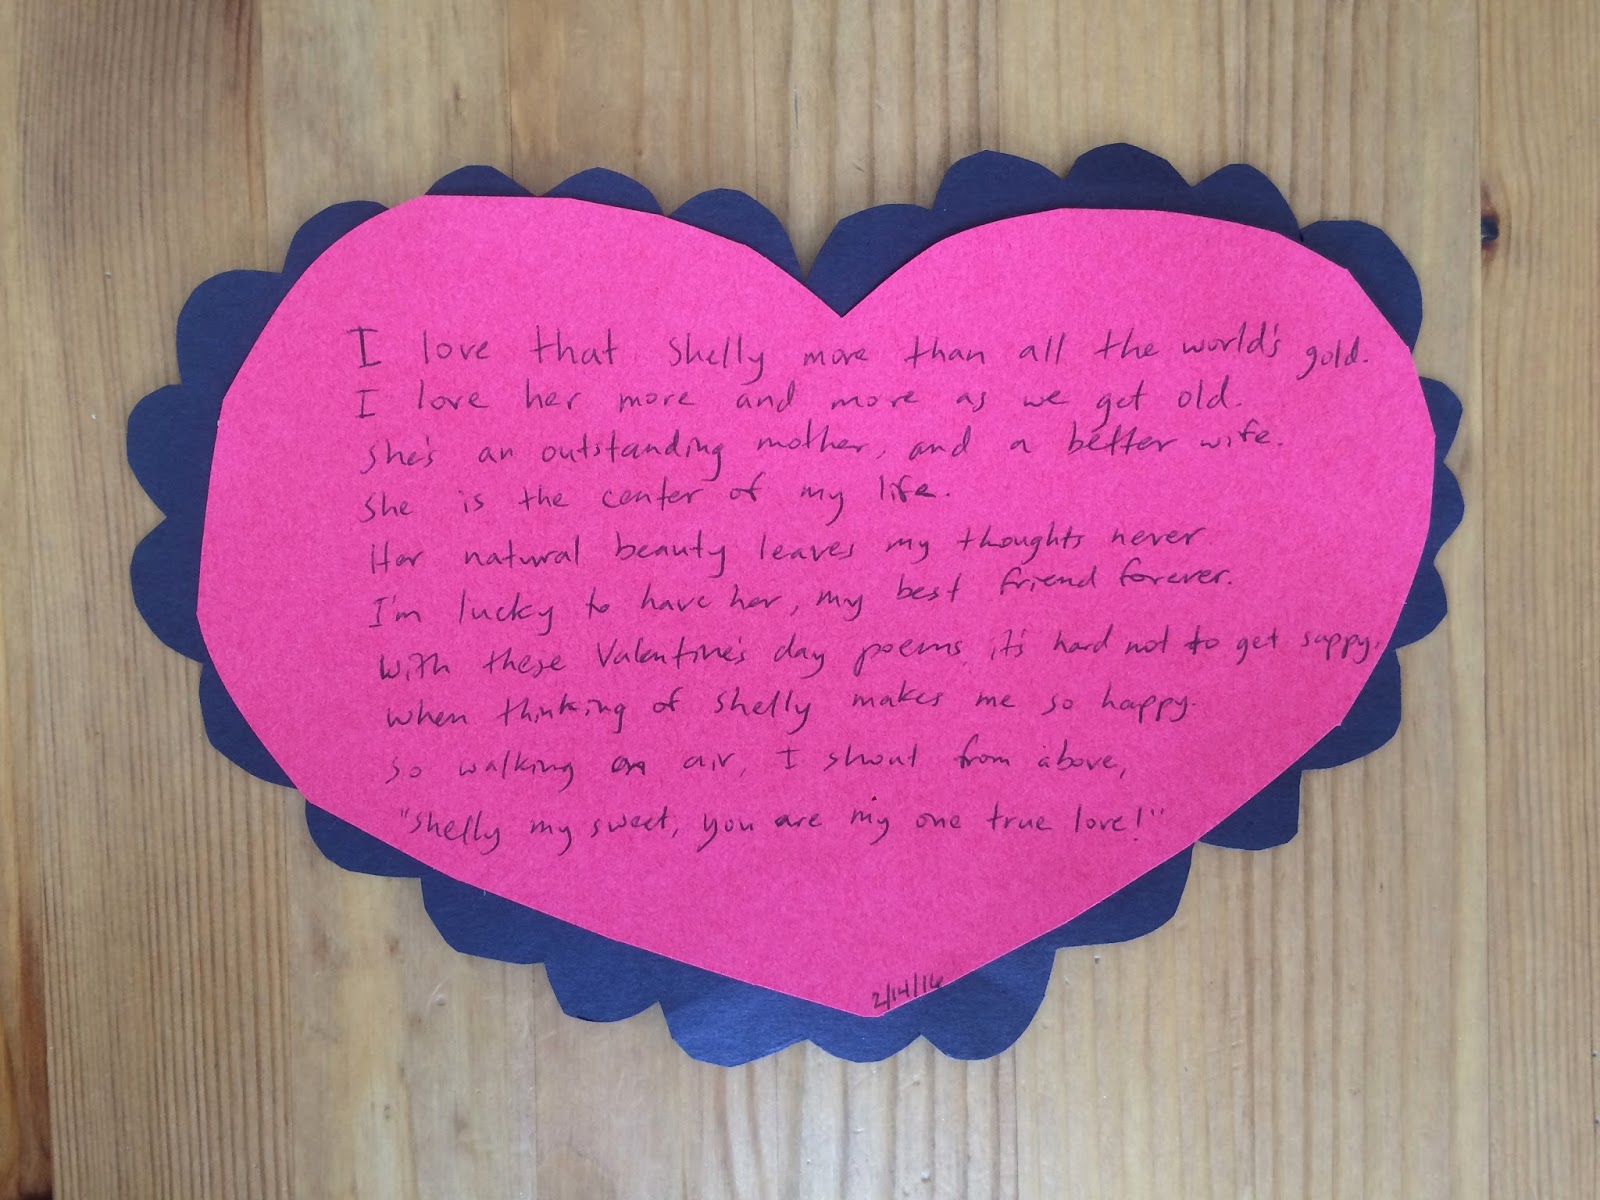 I love that Shelly more than all the world's gold.
I love her more and more as we get old.
She's an outstanding mother, and a better wife.
She is the center of my life.
Her natural beauty leaves my thoughts never.
I'm lucky to have her, my best friend forever.
With these Valentine's day poems, it's hard not to get sappy,
When thinking of Shelly makes me so happy.
So walking on air, I shout from above,
"Shelly my sweet, you are my one true love!"
2/14/16